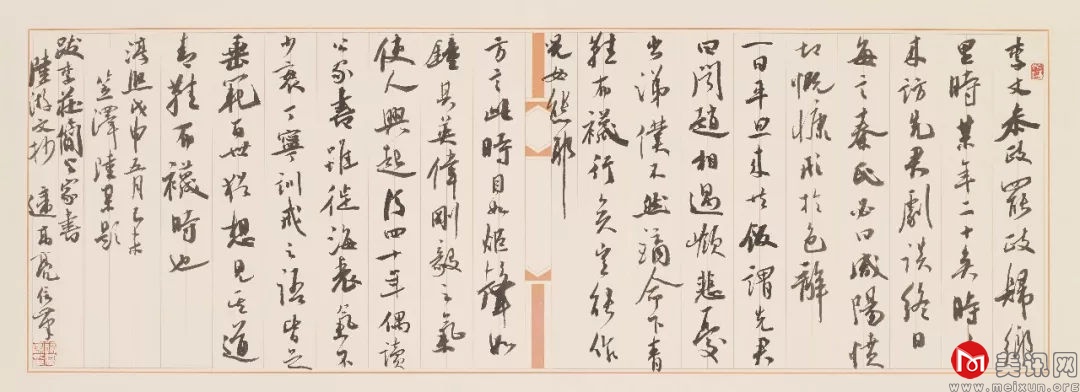 李丈参政罷政歸鄉
里時某年二十矣時時
来訪先君劇談終日
每言秦氏必曰咸陽憤
切慨慷形於色辭
一日平旦来共飯謂先君
曰聞趙相過嶺悲憂
出涕僕不然謫命下青
鞋布襪行矣豈能作
兒女態耶
方言此時目如炬聲如
鐘其英偉剛毅之氣
使人興起後四十年偶讀
公家書雖徙海表氣不
少衰丁寧訓戒之語皆足
垂範百世猶想見其道
青鞋布襪時也
淳熙戊申五月己未
笠澤陸某題
跋李莊簡公家書
陸游文抄 高亮
美讯网
www.meixun.org